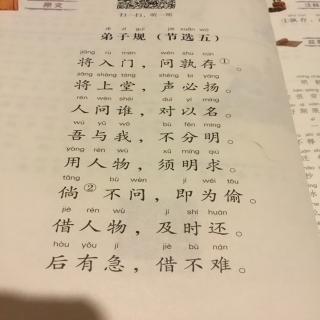 原文
扫一扫，听一听
dì zǐ guī jié xuǎn wǔ
弟子规（节选五）
jiāng rù mén wèn shú cún
将入门，问孰存①。
jiāng shàng táng shēng bì yáng
将上堂，声必扬。
rén wèn shéi duì yǐ míng
人问谁，对以名。
wú yǔ wǒ bù fēn míng
吾与我，不分明。
yòng rén wù xū míng qiú
用人物，须明求。
tǎng bù wèn jí wéi tōu
倘②不问，即为偷。
jiè rén wù jí shí huán
借人物，及时还。
hòu yǒu jí jiè bù nán
后有急，借不难。